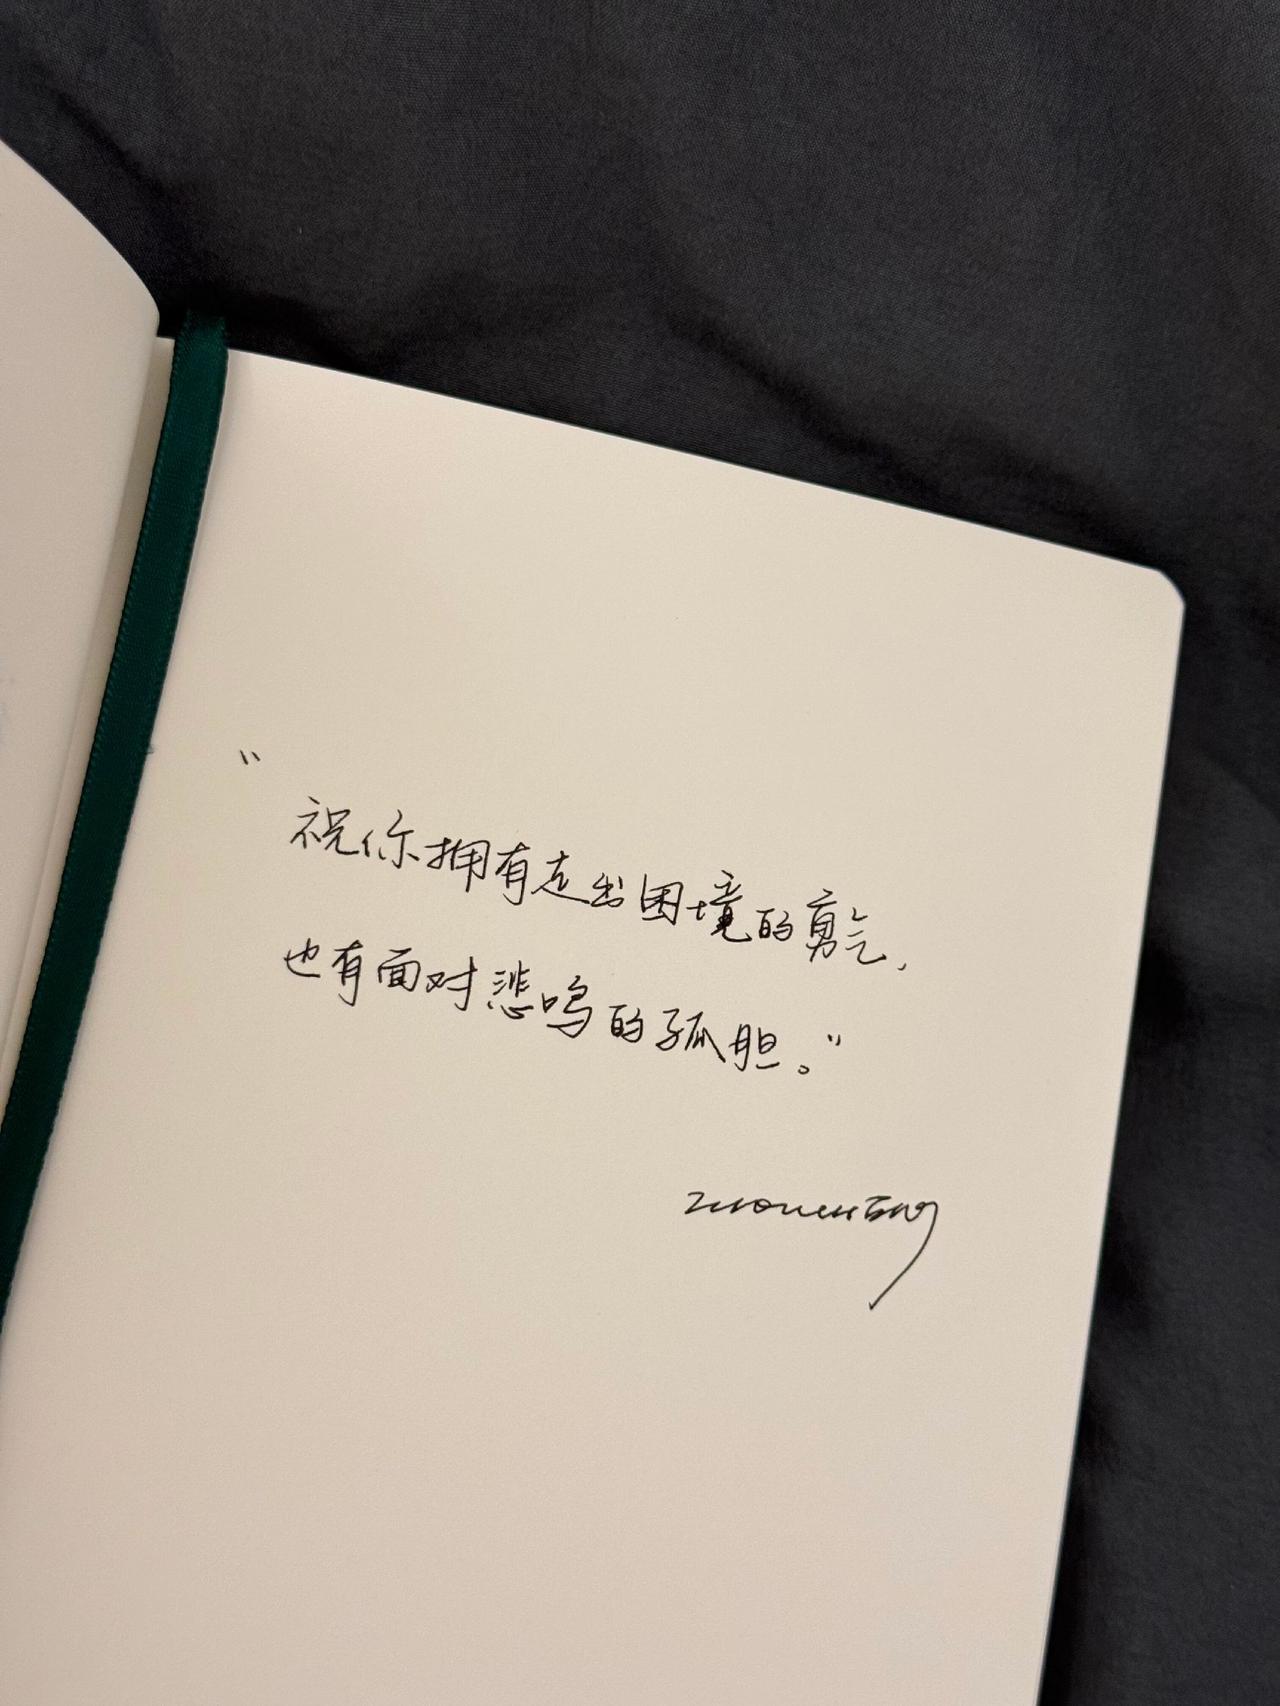 “祝你拥有走出困境的勇气，
也有面对悲鸣的孤胆。”